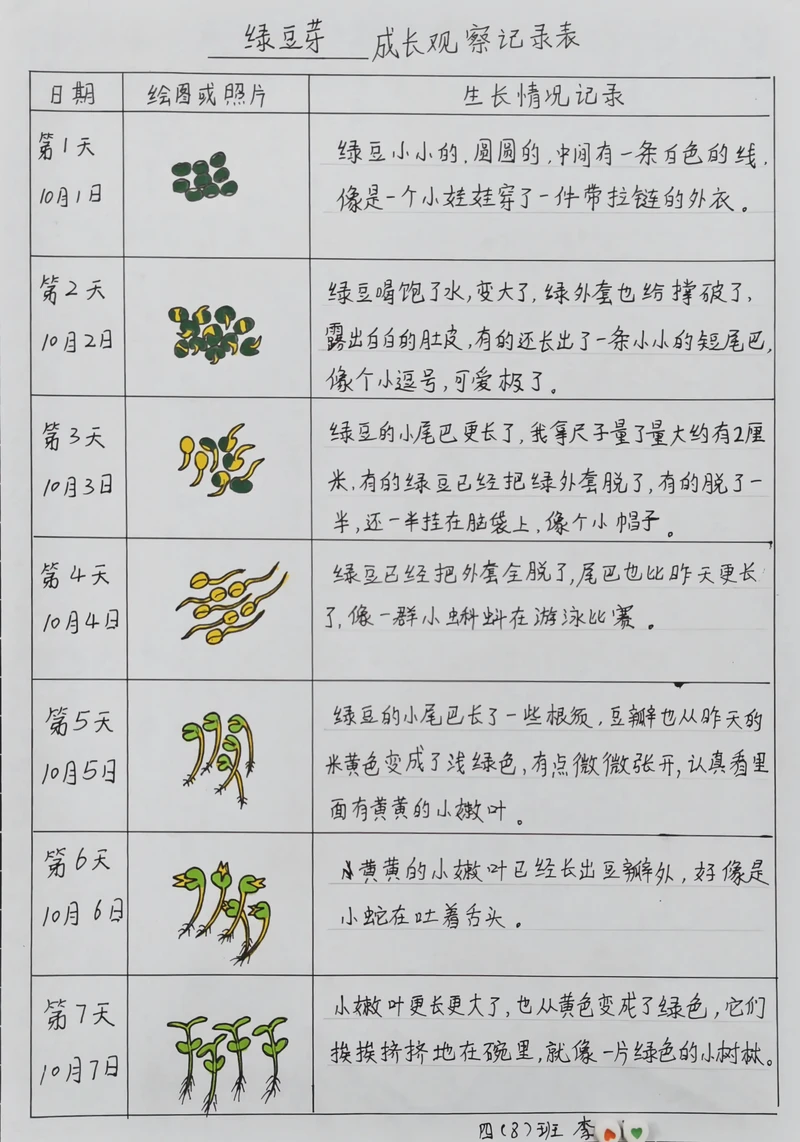 绿豆芽 成长观察记录表
日期 绘图或照片 生长情况记录
第1天
10月1日
绿豆小小的,圆圆的,中间有一条白色的线,
像是一个小娃娃穿了一件带拉链的外衣。
第2天
10月2日
绿豆喝饱了水,变大了,绿外套也给撑破了,
露出白白的肚皮,有的还长出了一条小小的短尾巴,
像个小逗号,可爱极了。
第3天
10月3日
绿豆的小尾巴更长了,我拿尺子量了量大约有2厘
米,有的绿豆已经把绿外套脱了,有的脱了一
半,还一半挂在脑袋上,像个小帽子。
第4天
10月4日
绿豆已经把外套全脱了,尾巴也比昨天更长
了,像一群小蝌蚪在游泳比赛。
第5天
10月5日
绿豆的小尾巴长了一些根须,豆瓣也从昨天的
米黄色变成了浅绿色,有点微微张开,认真看里
面有黄黄的小嫩叶。
第6天
10月6日
黄黄的小嫩叶已经长出豆瓣外,好像是
小蛇在吐着舌头。
第7天
10月7日
小嫩叶更长更大了,也从黄色变成了绿色,它们
挨挨挤挤地在碗里,就像一片绿色的小树林。
四(8)班 李